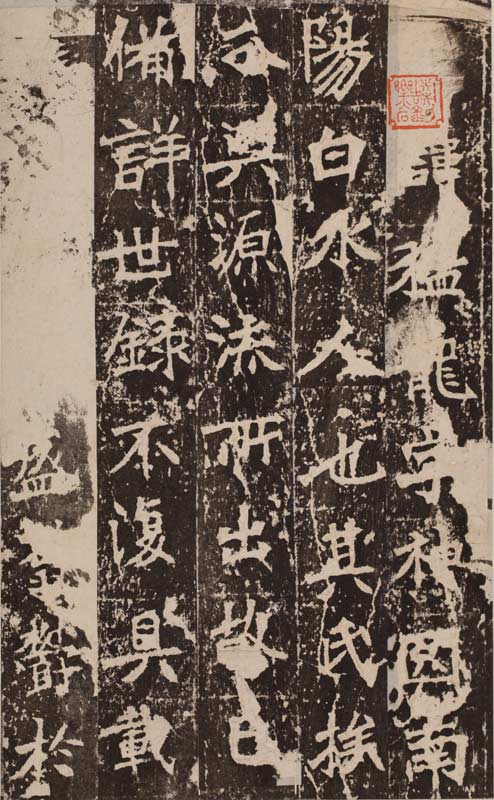 諱猛龍字神囧南
陽白水人也其氏族
分興源流所出故已
備詳世録不復具載
於